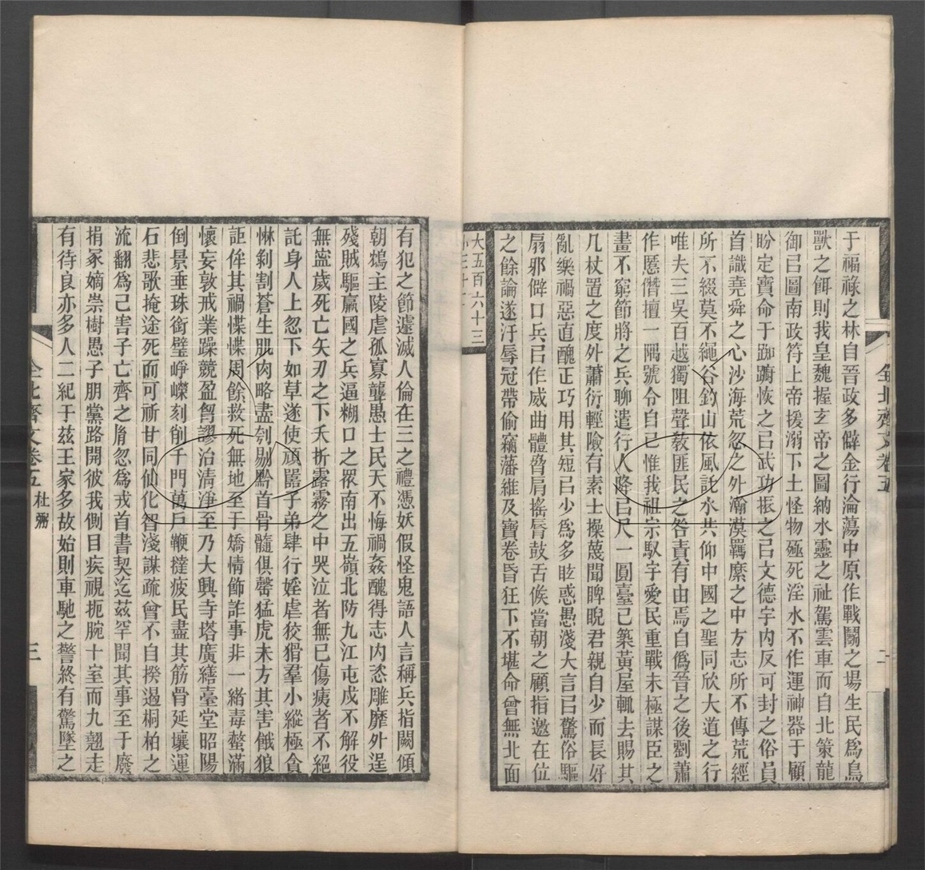 于福祿之林自晉政多僻金行淪蕩中原作戰鬭之場生民爲鳥
獸之餌則我皇魏握玄帝之圖納水靈之祉駕雲車而自北策龍
御㠯圖南政符上帝援溺下土怪物殛死淫水不作運神器于顧
盼定寶命于踟躕恢之㠯武功振之㠯文德宇內反可封之俗員
首識堯舜之心沙海荒忽之外瀚漠羈縻之中方志所不傳荒經
所不綴莫不繩谷釣山依風託水共仰中國之聖同欣大道之行
唯夫三吳百越獨阻聲敎匪民之咎責有由焉自僞晉之後劉蕭
作慝僭擅一隅號令自己惟我祖宗馭宇愛民重戰未極謀臣之
畫不窮節將之兵聊遣行人降㠯尺一圓臺已築黃屋輒去賜其
几杖置之度外蕭衍輕險有素士操蔑聞睥睨君親自少而長好
亂樂禍惡直醜正巧用其短㠯少爲多眩惑愚淺大言㠯驚俗驅
扇邪僻口兵㠯作威曲體脅肩搖脣鼓舌候當朝之顧指邀在位
之餘論遂汙辱冠帶偷竊藩維及寶卷昏狂下不堪命曾無北面
大五百六十三
全北齊文卷五
二
有犯之節遽滅人倫在三之禮憑妖假怪鬼語人言稱兵指闕傾
朝鴆主陵虐孤寡聾愚士民天不悔禍姦醜得志內恣雕靡外逞
殘賊驅羸國之兵逼糊口之眾南出五嶺北防九江屯戍不解役
無寧歲死亡矢刃之下夭折霧露之中哭泣者無已傷痍者不絕
託身人上忽下如草遂使頑嚚子弟肆行婬虐狡猾羣小縱極貪
惏剝割蒼生肌肉略盡刳剔黔首骨髓俱罄猛虎未方其害餓狼
詎侔其禍慄慄周餘救死無地至于矯情飾詐事非一緒毒螫滿
懷妄敦戒業躁競盈胷謬治淸淨至乃大興寺塔廣繕臺堂昭陽
倒景垂珠銜璧崢嶸刻削千門萬戶鞭撻疲民盡其筋骨延壤運
石悲歌掩途死而可祈甘同仙化智淺謀疏曾不自揆遏桐柏之
流翻爲己害子亡齊之胤忽爲戎首書契迄茲罕聞其事至于廢
捐冢嫡崇樹愚子朋黨路開彼我側目疾視扼腕十室而九翹走
有待良亦多人二紀于茲王家多故始則車馳之警終有驚墜之
全北齊文卷五
杜弼
三